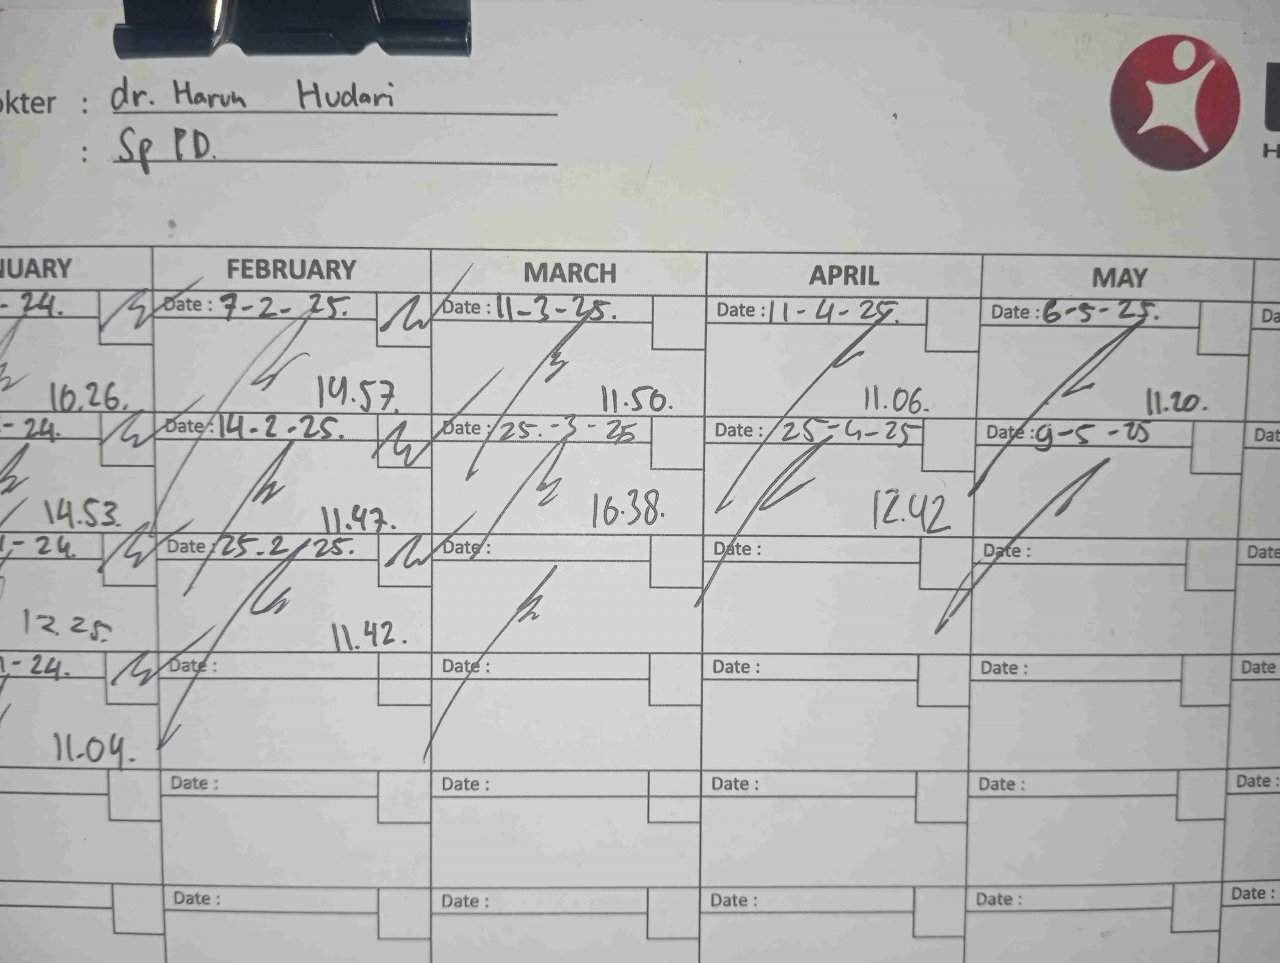 okter : dr. Harun Hudari
: Sp PD.
H
NUARY FEBRUARY MARCH APRIL MAY
- 24. Date : 7-2-25. Date : 11-3-25. Date : 11-4-25. Date : 6-5-25. Da
10.26. 14.57. 11.50. 11.06. 11.20.
- 24. Date : 14-2-25. Date : 25.-3-25 Date : 25-4-25 Date : 9-5-25 Dat
14.53. 11.47. 16.38. 12.42
- 24. Date : 25.2.25. Date : Date : Date : Date
12.25. 11.42.
- 24. Date : Date : Date : Date : Date
11.04.
Date : Date : Date : Date : Date :
Date : Date : Date : Date : Date :